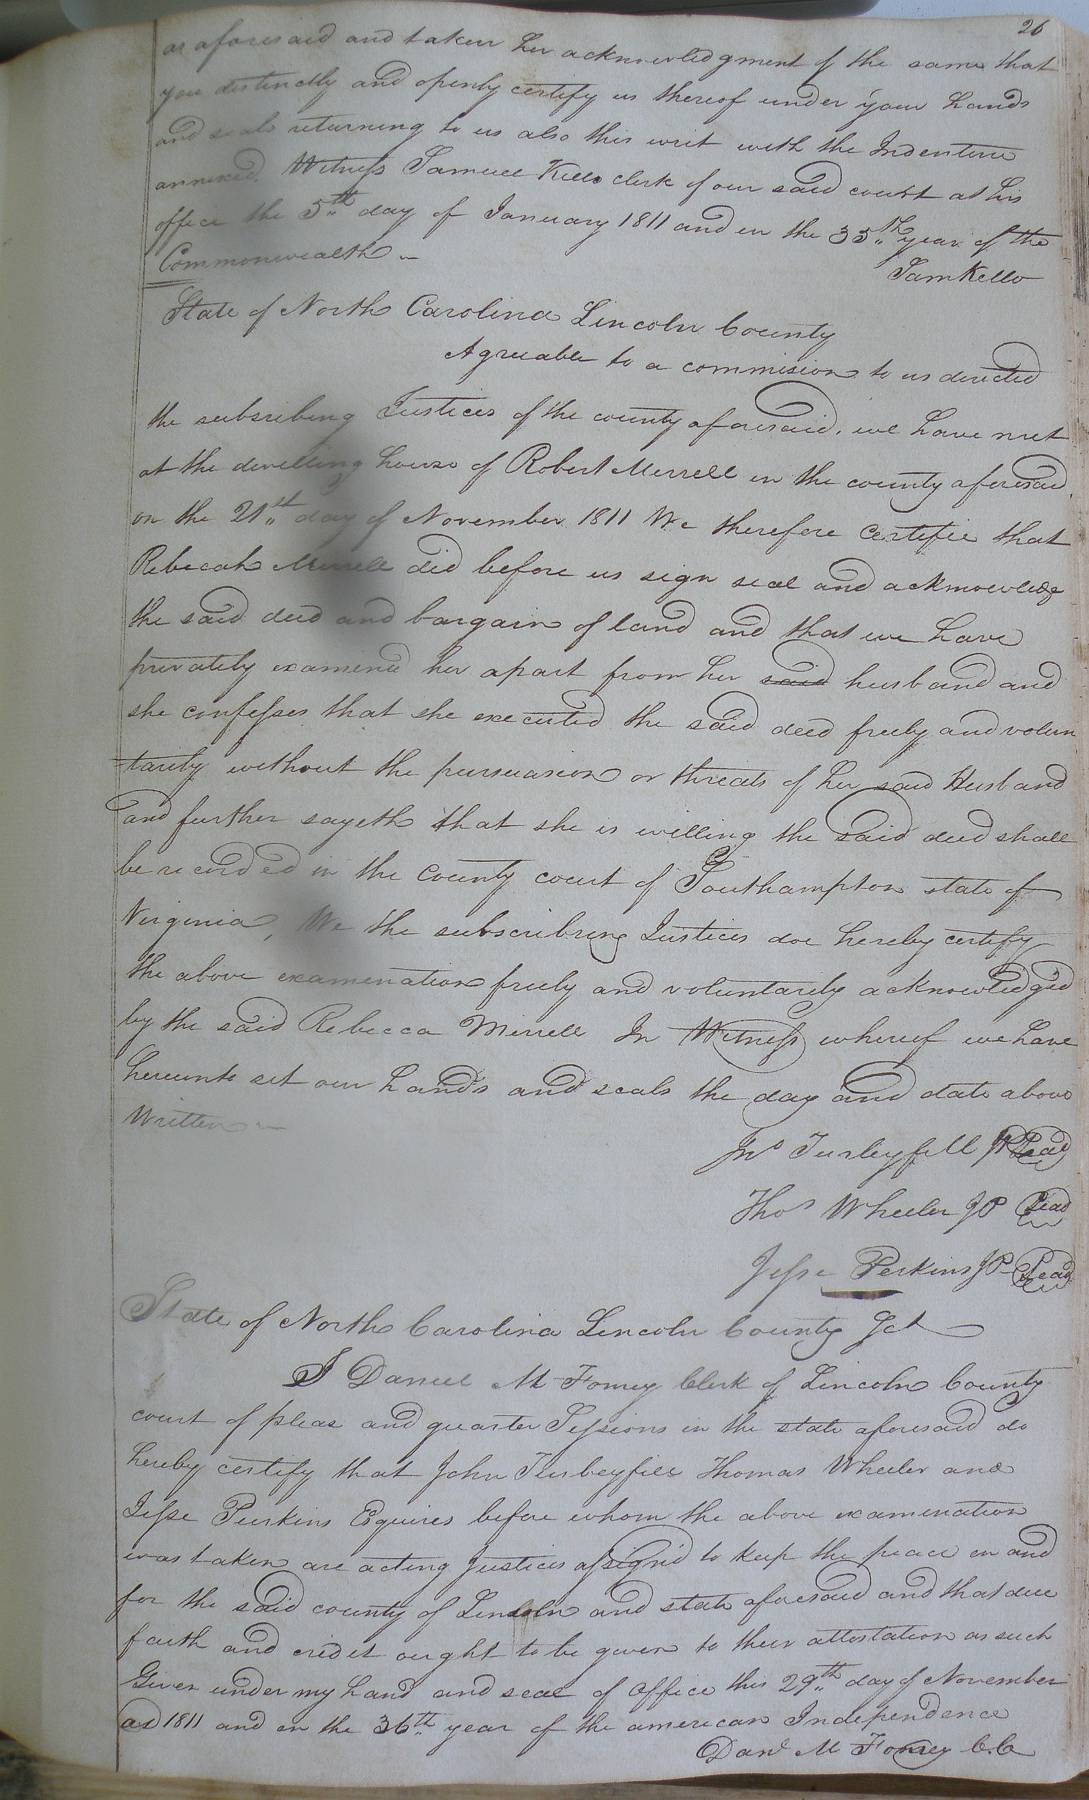 26
as aforesaid and taken her acknowledgment of the same that
you distinctly and openly certify us thereof under your hands
and seals returning to us also this writ with the Indenture
annexed. Witness Samuel Kello clerk of our said court at his
office the 5th day of January 1811 and in the 35th year of the
Commonwealth
Sam Kello
State of North Carolina Lincoln County
Agreeable to a commision to us directed
the subscribing Justices of the county aforesaid. we have met
at the dwelling house of Robert Merrell in the county aforesaid
on the 21st day of November 1811 We therefore certifie that
Rebecah Merrell did before us sign seal and acknowledge
the said deed and bargain of land and that we have
privately examined her apart from her said husband and
she confesses that she executed the said deed freely and volun
tarily without the pursuasion or threats of her said Husband
and further sayeth that she is willing the said deed shall
be recorded in the county court of Southampton state of
Virginia, We the subscribing Justices doe hereby certify
the above examenation freely and voluntarely acknowledg'd
by the said Rebecca Merrell In Witness whereof we have
hereunto set our hands and seals the day and date above
Written
Jno Turbyfill JP Seal
Thos Wheeler JP Seal
Jesse Perkins JP Seal
State of North Carolina Lincoln County Sct
I Daniel M Forney Clerk of Lincoln County
court of pleas and quarter Sessions in the state aforesaid do
hereby certify that John Turbeyfill Thomas Wheeler and
Jesse Perkins Esquires before whom the above examenation
was taken are acting Justices assign'd to keep the peace in and
for the said county of Lincoln and state aforesaid and that due
faith and credit ought to be given to their attestation as such
Given under my hand and seal of office this 29th day of November
ad 1811 and in the 36th year of the american Independence
Danl M Forney C.C